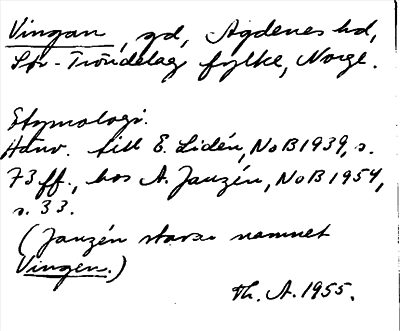 Vingan, gd, Agdenes hd,
Sør-Tröndelag fylke, Norge.
Etymologi.
Hänv. till E. Lidén, NoB 1939, s.
73 ff., hos A. Janzén, NoB 1954,
s. 33.
(Janzén stavar namnet
Vingen.)
Th. A. 1955.